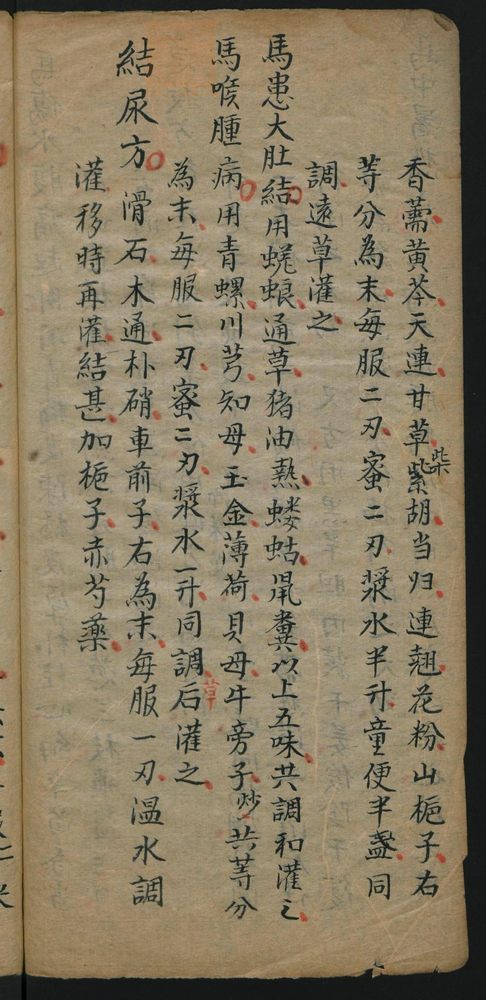 香薷黄芩天連甘草紫柴胡当归連翹花粉山梔子右
等分為末每服二刃蜜二刃漿水半升童便半盞同
調遠草灌之
馬患大肚結用蜣蜋通草猪油熱蝼蛄鼡糞以上五味共調和灌之
馬喉腫病用青螺川芎知母玉金薄荷貝母牛旁子炒共等分
為末每服二刃蜜二刃漿水一升同調草后灌之
結尿方滑石木通朴硝車前子右為末每服一刃温水調
灌移時再灌結甚加梔子赤芍藥